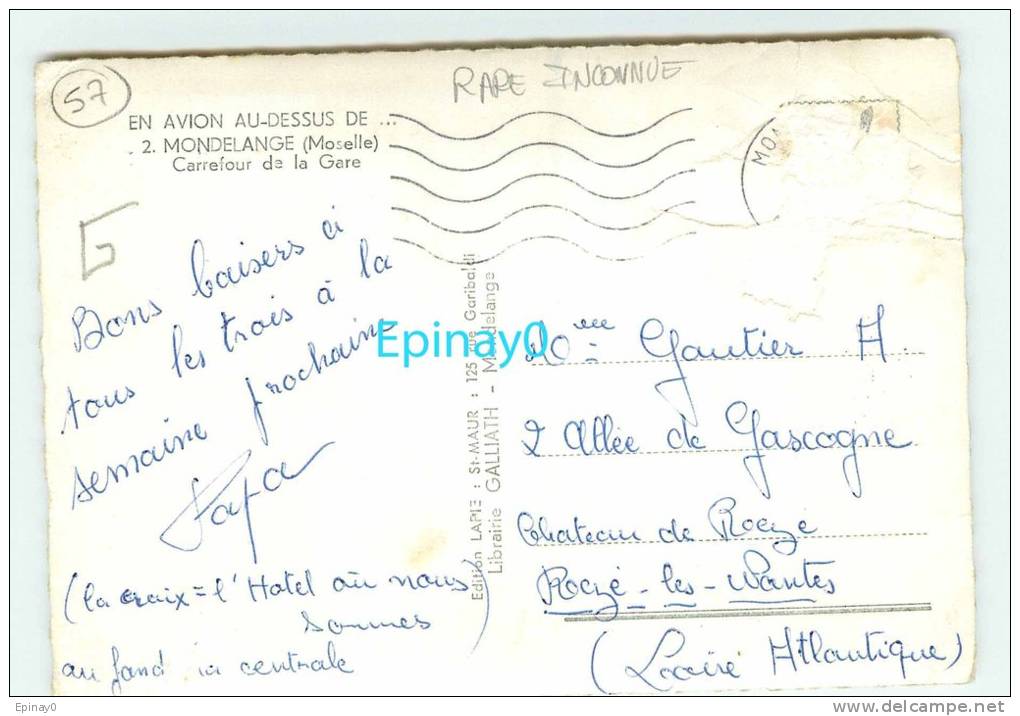 57
RARE INCONNUE
EN AVION AU-DESSUS DE ...
2. MONDELANGE (Moselle)
Carrefour de la Gare
MON
G
Bons baisers à
tous les trois à la
semaine prochaine
Papa
(la croix = l'Hotel où nous
sommes)
au fond la centrale
Edition LAPIE : St-MAUR : 125 rue Garibaldi
Librairie GALLIATH - Mondelange
Epinay0
Mme Gautier A
2 Allée de Gascogne
Chateau de Rezé
Rezé-les-Nantes
(Loire Atlantique)
Epinay0
www.delcampe.net